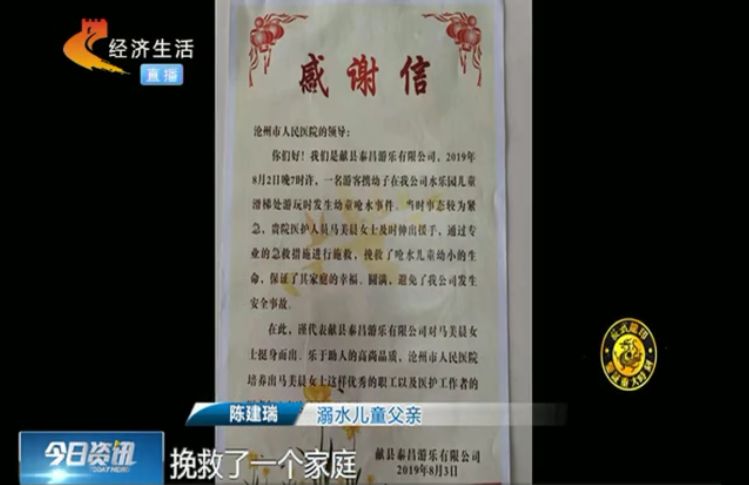 经济生活
直播
感谢信
沧州市人民医院的领导:
你们好!我们是献县泰昌游乐有限公司,2019年
8月2日晚7时许,一名游客携幼子在我公司水乐园儿童
滑梯处游玩时发生幼童呛水事件。当时事态较为紧
急,贵院医护人员马美晨女士及时伸出援手,通过专
业的急救措施进行施救,挽救了呛水儿童幼小的生
命,保证了其家庭的幸福。圆满,避免了我公司发生
安全事故。
在此,谨代表献县泰昌游乐有限公司对马美晨女
士挺身而出、乐于助人的高尚品质,沧州市人民医院
培养出马美晨女士这样优秀的职工以及医护工作者的
陈建瑞 溺水儿童父亲
今日资讯
TODAY NEWS
挽救了一个家庭
献县泰昌游乐有限公司
2019年8月3日